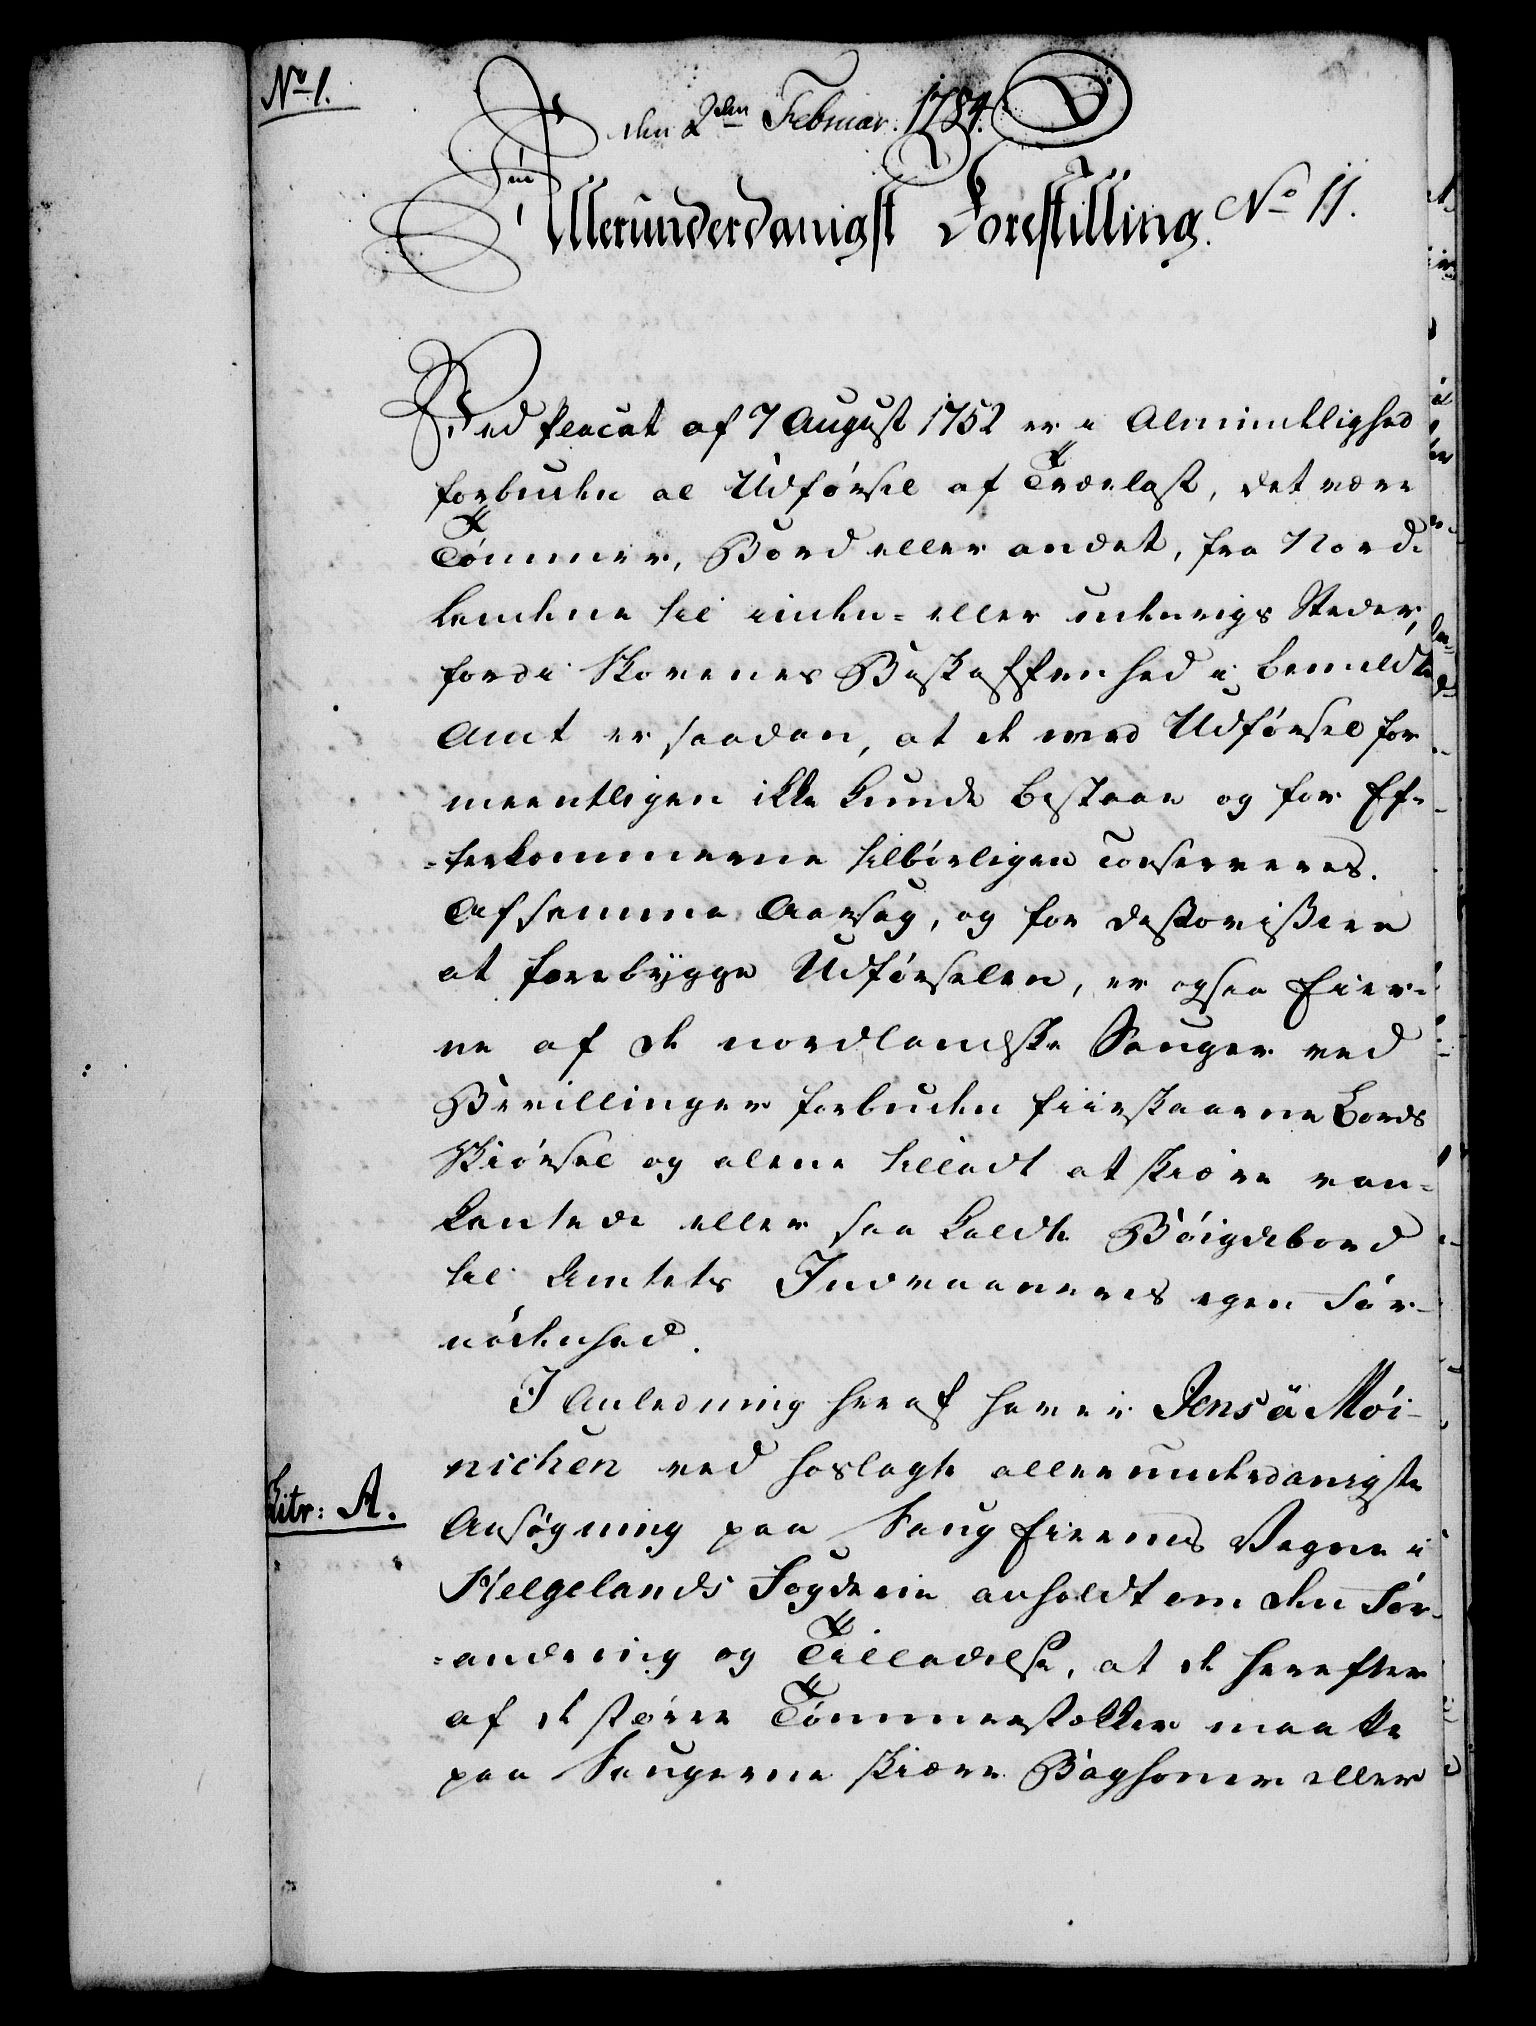 No 1.
den 2den Februar. 1784.
Allerunderdanigst Forestilling. No 11.
Ved Placat af 7 August 1752 er i Almindelighed
forbuden al Udførsel af Trælast, det være
Tømmer, Bord eller andet, fra Nord-
landene til inden- eller udenrigs Steder,
fordi Skovenes Beskaffenhed i bemeldte
Amt er saadan, at de med Udførsel for-
meentligen ikke kunde bestaae og for Ef-
-terkommerne tilbørligen conserveres.
Af samme Aarsag, og for desto vissere
at forebygge Udførselen, er ogsaa Eier-
ne af de nordlandske Sauger ved
Bevillinger forbuden fiirskaarne Bords
Skiørsel og alene tilladt at skiære van-
kantede eller saa kaldte Bøigdebord
til Amtets Indvaaneres egen For-
nødenhed.
I Anledning heraf haver Jens à Møi-
nichen ved hoslagte allerunderdanigste
Litr: A.
Ansøgning paa Saug Eiernes Vegne i
Helgelands Fogderie anholdt om den For-
-andring og Tilladelse, at de herefter
af de større Tømmerstokker maatte
paa Saugerne skiære Baghoner eller